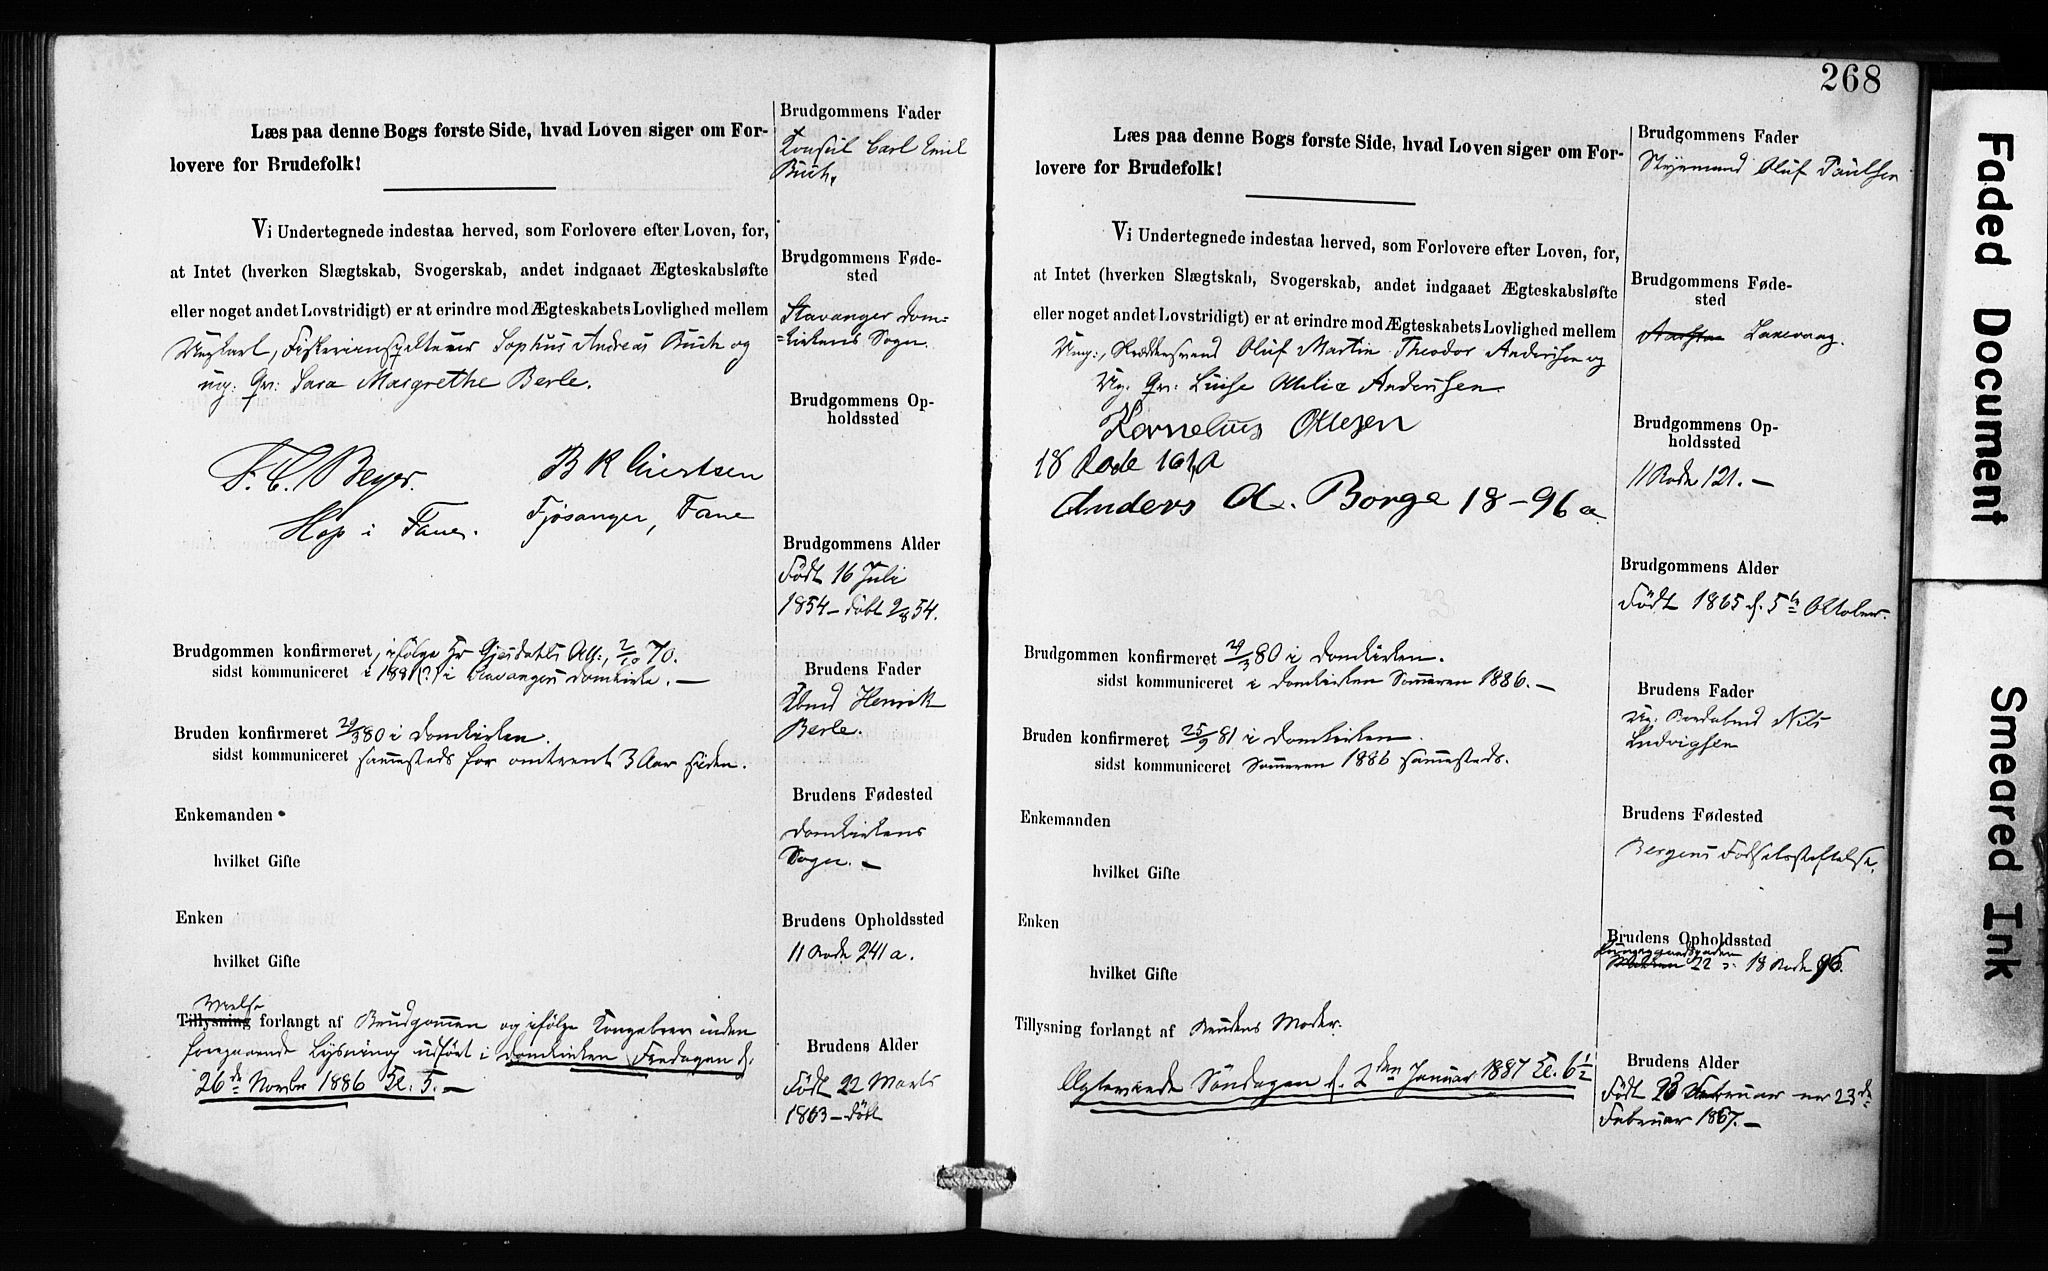 Læs paa denne Bogs første Side, hvad Loven siger om For-
lovere for Brudefolk!
Vi Undertegnede indestaa herved, som Forlovere efter Loven, for,
at Intet (hverken Slægtskab, Svogerskab, andet indgaaet Ægteskabsløfte
eller noget andet Lovstridigt) er at erindre mod Ægteskabets Lovlighed mellem
Ungkarl, Sophus Andreas Buch og
ug: Qv: Sara Margrethe Berle.
F. C. Beyer. B K Giertsen
Hop i Fane. Fjøsanger, Fane
Brudgommen konfirmeret, ifølge Hr Gjesdahls Att:, 2/10 70.
sidst kommuniceret i 1881(?) i Stavangers Domkirke. —
Bruden konfirmeret 29/3 80 i Domkirken.
sidst kommuniceret sammesteds for omtrent 3 Aar siden.
Enkemanden
hvilket Gifte
Enken
hvilket Gifte
Vielse
Tillysning forlangt af Brudgommen og ifølge Kongebrev uden
foregaaende Lysning udført i Domkirken Fredagen d.
26de Novbr 1886 Kl. 5. —
Brudgommens Fader
Konsul Carl Emil
Buch.
Brudgommens Føde-
sted
Stavanger Dom-
kirkens Sogn.
Brudgommens Op-
holdssted
Brudgommens Alder
Født 16 Juli
1854 — døbt 2/8 54.
Brudens Fader
Henrik
Berle.
Brudens Fødested
Domkirkens
Sogn. —
Brudens Opholdssted
11 Rode 241 a.
Brudens Alder
Født 22 Marts
1863 — døbt
268
Læs paa denne Bogs første Side, hvad Loven siger om For-
lovere for Brudefolk!
Vi Undertegnede indestaa herved, som Forlovere efter Loven, for,
at Intet (hverken Slægtskab, Svogerskab, andet indgaaet Ægteskabsløfte
eller noget andet Lovstridigt) er at erindre mod Ægteskabets Lovlighed mellem
Ung:, Oluf Martin Theodor Andersen og
Ug. Qv: Luise Amalie Andersen.
Kornelius Ollesen
18 Rode 161 a
Anders A. Borge 18 - 96 a
Brudgommen konfirmeret 29/3 80 i Domkirken.
sidst kommuniceret i Domkirken Sommeren 1886. —
Bruden konfirmeret 25/9 81 i Domkirken.
sidst kommuniceret Sommeren 1886 sammesteds.
Enkemanden
hvilket Gifte
Enken
hvilket Gifte
Tillysning forlangt af Brudens Moder.
Søndagen d. 2den Januar 1887 Kl. 6 1/2
Brudgommens Fader
Styrmand Oluf Paulsen
Brudgommens Føde-
sted
Laxevaag.
Brudgommens Op-
holdssted
11 Rode 121. —
Brudgommens Alder
Født 1865 d. 5te Oktober.
Brudens Fader
Nils
Ludvigsen
Brudens Fødested
Bergens Fødselsstiftelse.
Brudens Opholdssted
22 18 Rode 96.
Brudens Alder
Født 23 Februar 23de
Februar 1867. —
Faded Document
Smeared Ink